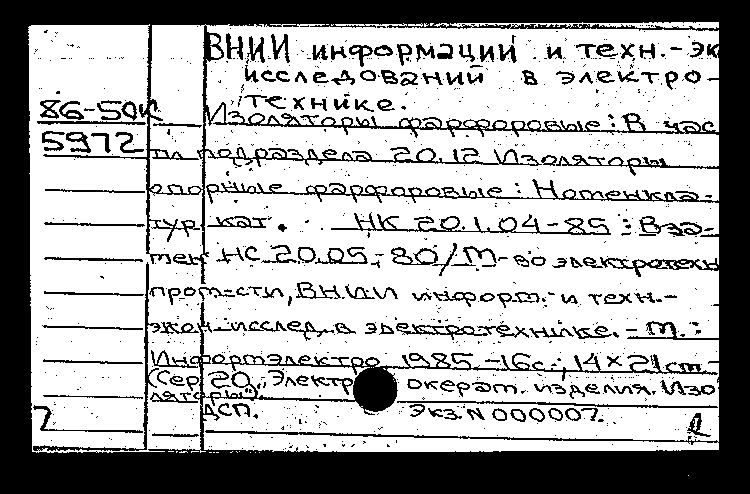 ВНИИ информации и техн.-эк
исследований в электро-
технике.
86-50к Изоляторы фарфоровые: В час
5972 пл подраздела 20.12 Изоляторы
опорные фарфоровые: Номенкла-
тур кат. НК 20.1.04-85: Вза-
мен НС 20.05.-80/М-во электротехн
пром-сти, ВНИИ информ. и техн.-
экон. исслед. в электротехнике. - М.:
Информэлектро 1985.-16с.; 14×21см-
(Сер 20, Электр окерам. изделия. Изо
ляторы).
7 ДСП. Экз. N 000007.